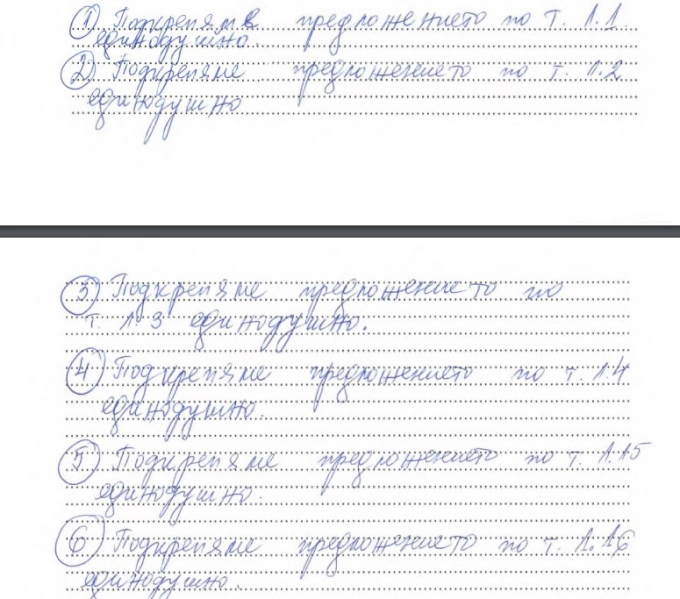 1 Подкрепяме предложението по т. 1.1.
единодушно.
2 Подкрепяме предложението по т. 1.2
единодушно
3 Подкрепяме предложението по
т. 1.3 единодушно.
4 Подкрепяме предложението по т. 1.4
единодушно.
5 Подкрепяме предложението по т. 1.15
единодушно.
6 Подкрепяме предложението по т. 1.16
единодушно.